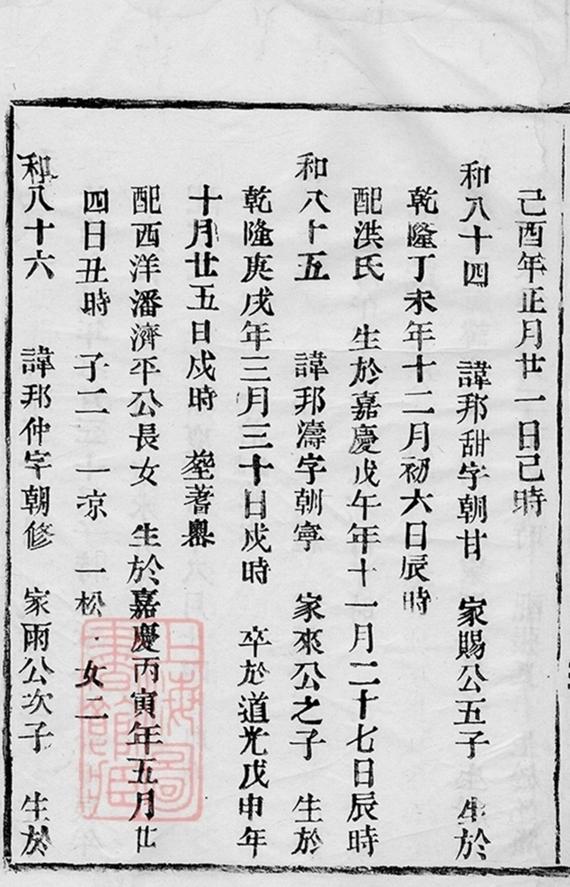 己酉年正月廿一日己時
和八十四 諱邦甜字朝甘 家賜公五子 生於
乾隆丁未年十二月初六日辰時
配洪氏 生於嘉慶戊午年十一月二十七日辰時
和八十五 諱邦濤字朝寧 家來公之子 生於
乾隆庚戌年三月三十日戌時 卒於道光戊申年
十月廿五日戌時 塟著
配西洋潘濟平公長女 生於嘉慶丙寅年五月廿
四日丑時 子二 一凉 一松 女二
和八十六 諱邦仲字朝修 家雨公次子 生於
上海圖書館藏